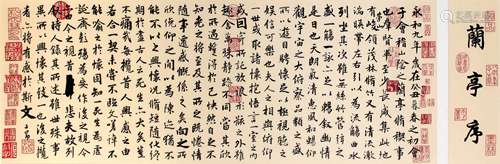 蘭亭序
永和九年歲在癸丑暮春之初會
于會稽山陰之蘭亭脩稧事
也羣賢畢至少長咸集此地
有峻領茂林脩竹又有清流激
湍暎帶左右引以為流觴曲水
列坐其次雖無絲竹管弦之
盛一觴一詠亦足以暢叙幽情
是日也天朗氣清惠風和暢仰
觀宇宙之大俯察品類之盛
所以遊目騁懷足以極視聽之
娛信可樂也夫人之相與俯仰
一世或取諸懷抱悟言一室之內
或因寄所託放浪形骸之外雖
趣舍萬殊靜躁不同當其欣
於所遇蹔得於己快然自足不
知老之將至及其所之既惓情
隨事遷感慨係之矣向之所
欣俛仰之間以為陳迹猶不
能不以之興懷況脩短隨化終
期於盡古人云死生亦大矣豈
不痛哉每攬昔人興感之由
若合一契未嘗不臨文嗟悼不
能喻之於懷固知一死生為虛
誕齊彭殤為妄作後之視今
亦由今之視昔悲夫故列
叙時人錄其所述雖世殊事
異所以興懷其致一也後之攬
者亦將有感於斯文